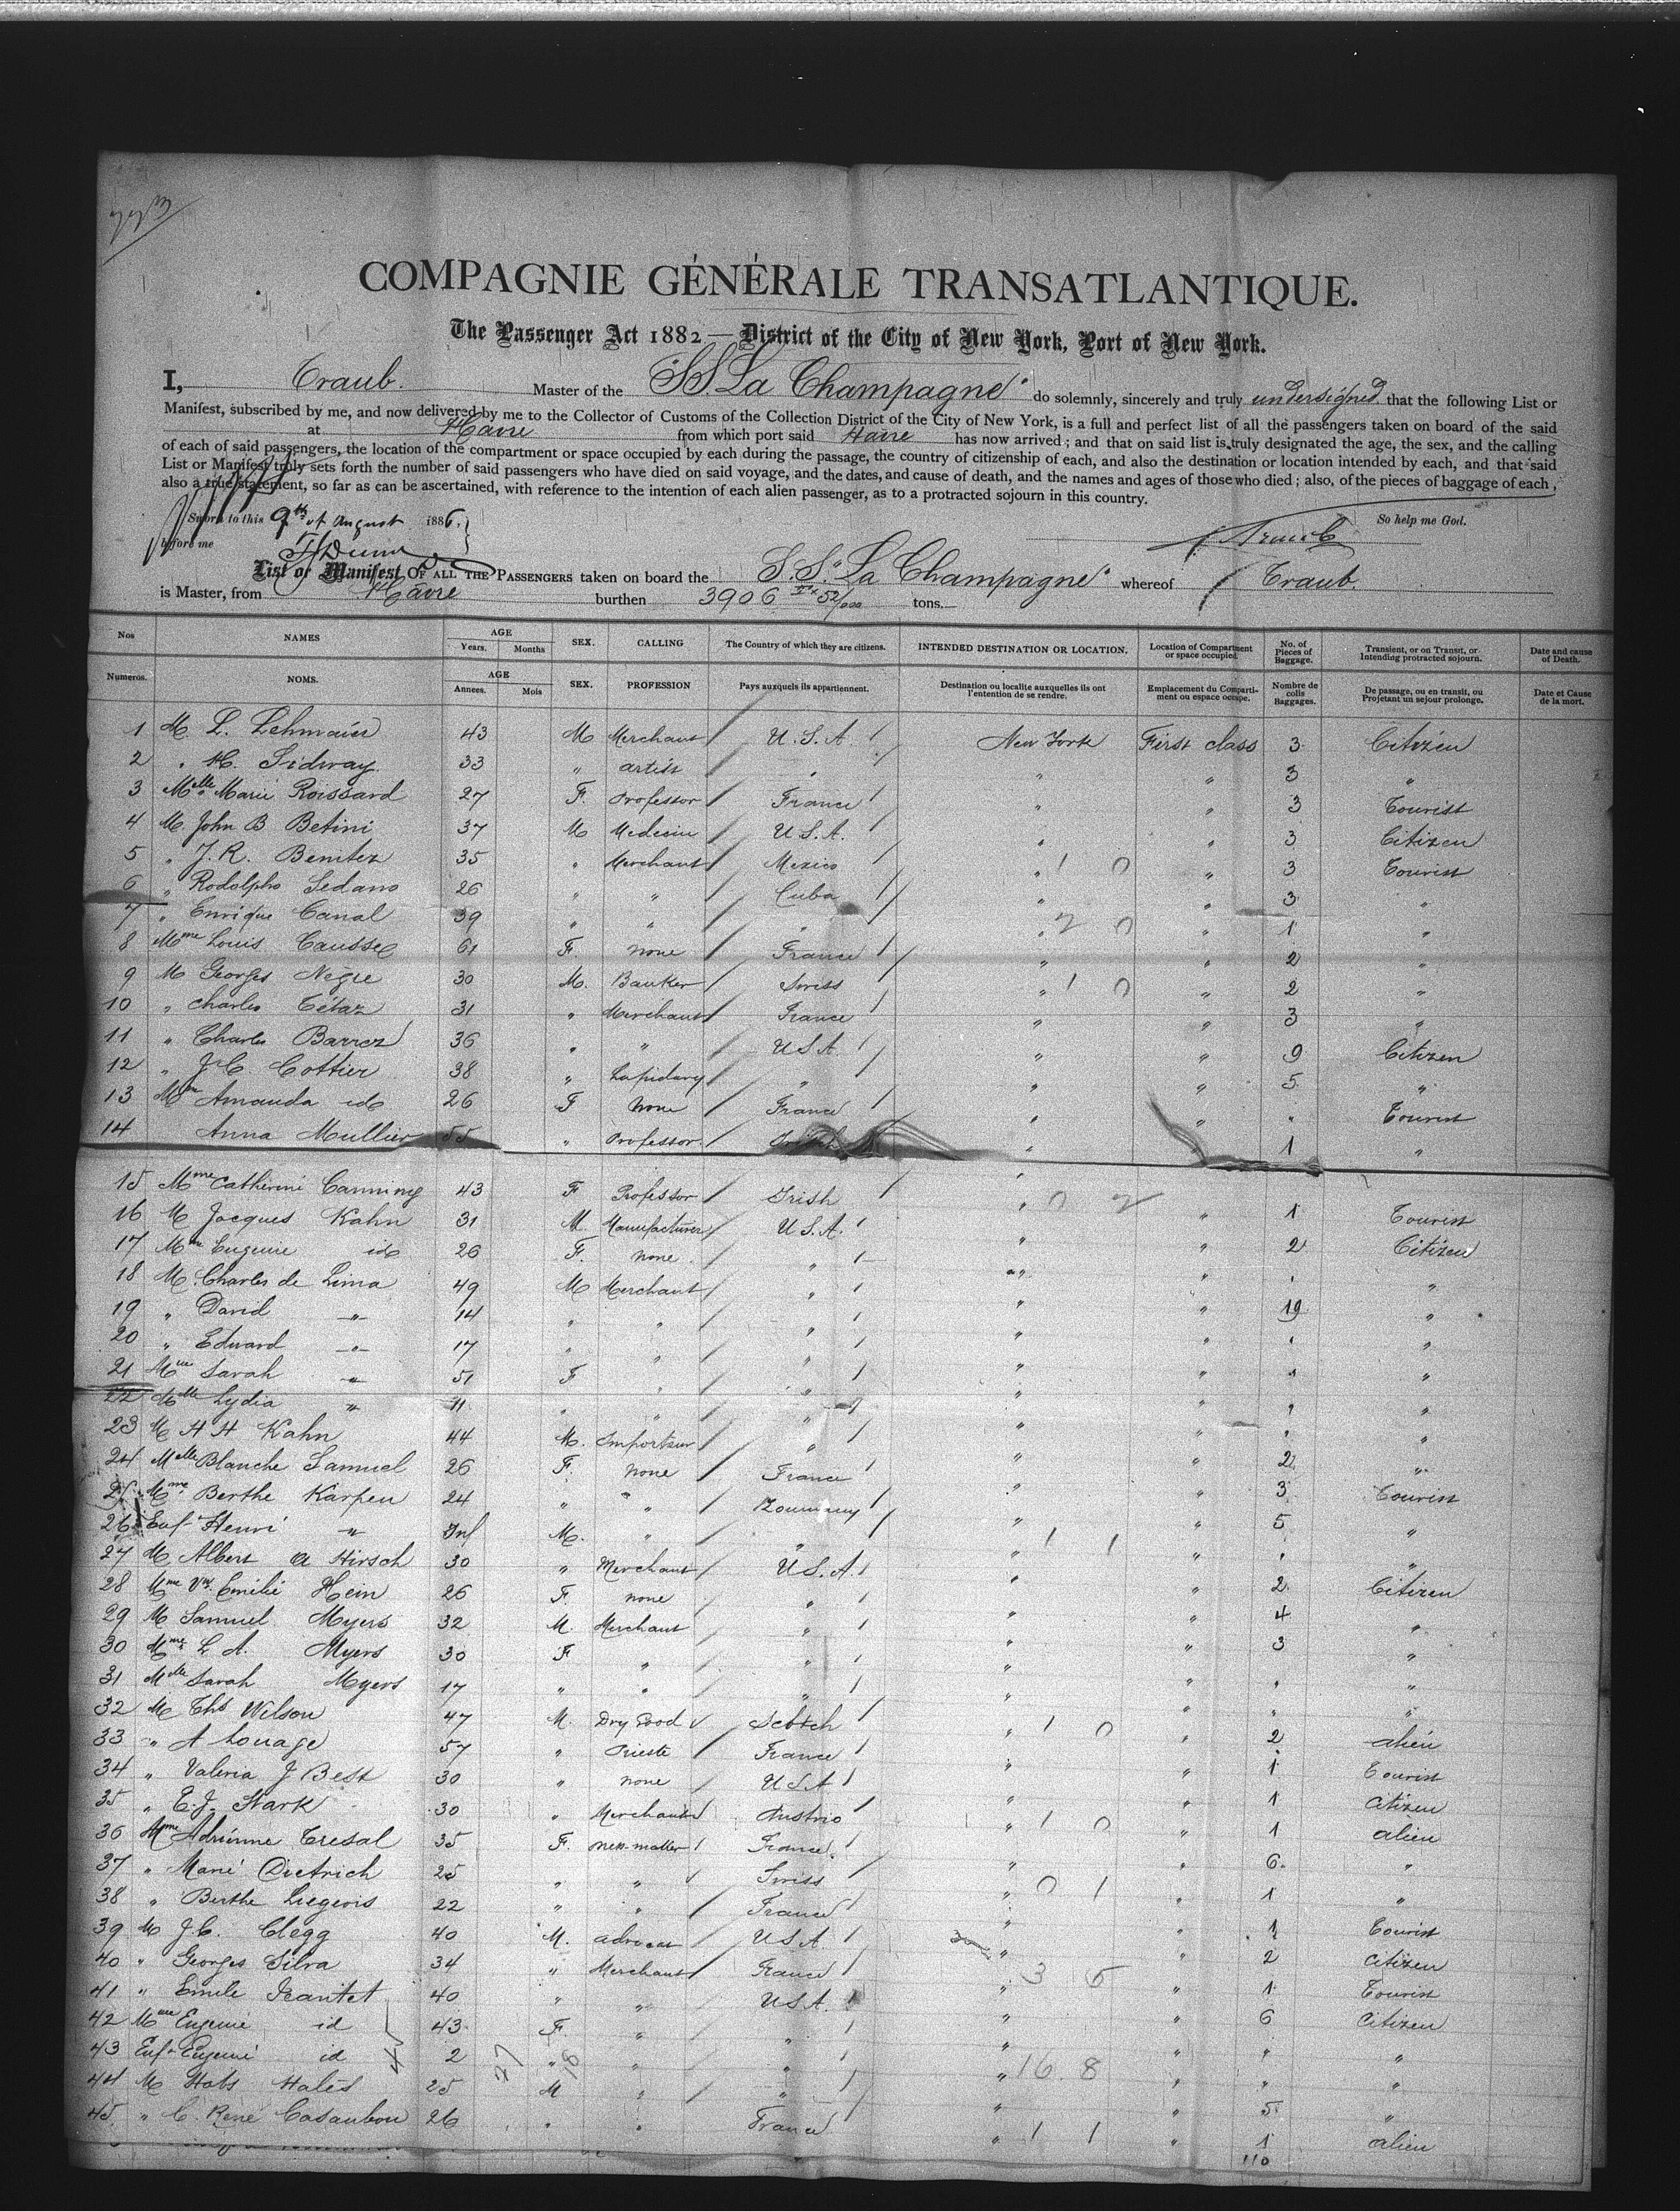 COMPAGNIE GÉNÉRALE TRANSATLANTIQUE.
The Passenger Act 1882 — District of the City of New York, Port of New York.
I, Traub. Master of the S.S. La Champagne do solemnly, sincerely and truly undersigned that the following List or
Manifest, subscribed by me, and now delivered by me to the Collector of Customs of the Collection District of the City of New York, is a full and perfect list of all the passengers taken on board of the said
at Havre from which port said Havre has now arrived; and that on said list is truly designated the age, the sex, and the calling
of each of said passengers, the location of the compartment or space occupied by each during the passage, the country of citizenship of each, and also the destination or location intended by each, and that said
List or Manifest truly sets forth the number of said passengers who have died on said voyage, and the dates, and cause of death, and the names and ages of those who died; also, of the pieces of baggage of each,
also a true statement, so far as can be ascertained, with reference to the intention of each alien passenger, as to a protracted sojourn in this country.
Sworn to this 9th of August 1886. So help me God.
before me Traub
List or Manifest OF ALL THE PASSENGERS taken on board the S.S. La Champagne whereof Traub.
is Master, from Havre burthen 3906 tons.
Nos NAMES AGE Years. Months SEX. CALLING The Country of which they are citizens. INTENDED DESTINATION OR LOCATION. Location of Compartment or space occupied No. of Pieces of Baggage. Transient, or on Transit, or Intending protracted sojourn. Date and cause of Death.
Numeros. NOMS. AGE Annees. Mois SEX. PROFESSION Pays auxquels ils appartiennent. Destination ou localite auxquelles ils ont l'entention de se rendre. Emplacement du Compartiment ou espace occupe. Nombre de colis Baggages. De passage, ou en transit, ou Projetant un sejour prolonge. Date et Cause de la mort.
1 M. L. Lehmaier 43 M Merchant U.S.A. New York First class 3 Citizen
2 " H. Sidway 33 " artist " " " 3 "
3 Melle Marie Roissard 27 F. Professor France " " 3 Tourist
4 M John B Betini 37 M Medecin U.S.A. " " 3 Citizen
5 " J.R. Benitez 35 " Merchant Mexico " 1 0 " 3 Tourist
6 " Rodolpho Sedano 26 " " Cuba " 3 "
7 " Enrique Canal 39 " " " " 2 0 " 1 "
8 Mme Louis Causse 61 F. none France " " 2 "
9 M Georges Negre 30 M. Banker Swiss " 1 0 " 2 "
10 " Charles Tétaz 31 " Merchant France " " 3 "
11 " Charles Barrez 36 " " U.S.A. " " 9 Citizen
12 " J C Cottier 38 " Lapidary " " " 5 "
13 Mme Amanda id 26 F None France " " " Tourist
14 Anna Mullier 55 " Professor " 1 "
15 Mme Catherine Canning 43 F Professor Irish " 0 2 " 1 Tourist
16 M Jacques Kahn 31 M. Manufacturer U.S.A. " " 2 Citizen
17 Mme Eugenie id 26 F. none " " " " "
18 M. Charles de Lima 49 M Merchant " " " 19 "
19 " David " 14 " " " " " " "
20 " Edward " 17 " " " " " " "
21 Mme Sarah " 51 F " " " " " "
22 Melle Lydia " 11 " " " " " " "
23 M H H Kahn 44 M. Importeur " " " 2 "
24 Melle Blanche Samuel 26 F. none France " " 3 Tourist
25 Mme Berthe Karpen 24 " " " " 5 "
26 Enf Henri " Inf M. " " " 1 1 " " "
27 M. Albert A Hirsch 30 " Merchant U.S.A. " " 2 Citizen
28 Mme Vve Emilie Hein 26 F. none " " " 4 "
29 M Samuel Myers 32 M. Merchant " " " 3 "
30 Mme L A. Myers 30 F " " " " " "
31 Melle Sarah Myers 17 " " " " " " "
32 M Ths Wilson 47 M. Dry Good Scotch " 1 0 " 2 alien
33 " A Louage 57 " Prieste France " " 1 Tourist
34 " Valeria J Best 30 " none U S A " " 1 Citizen
35 " E.J. Stark 30 " Merchant Austrio " 1 0 " 1 alien
36 Mme Adrienne Tresal 35 F. France " " 6 "
37 " Marie Dietrich 25 " " Swiss " 0 1 " 1 "
38 " Berthe Liegeois 22 " " France " " 1 Tourist
39 M J.C. Clegg 40 M. advocat U S A. " " 2 Citizen
40 " Georges Silva 34 " Merchant France " 3 5 " 1 Tourist
41 " Emile Frantet 40 " " U S A. " " 6 Citizen
42 Mme Eugenie id 43 F " " " " " "
43 Enf Eugenie id 2 " " " " 16 8 " " "
44 M Hobs Hales 25 M " " " " 5 "
45 " C. René Casaubon 26 " " France " 1 1 " 1 alien
110